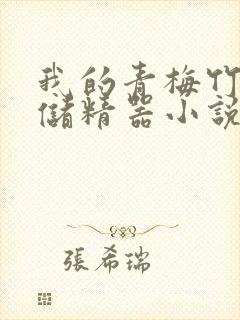 我的青梅竹
儲精器小說
張希瑞